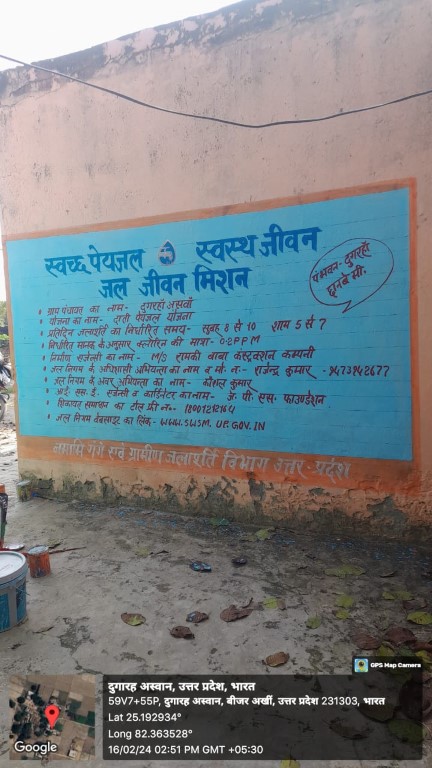 स्वच्छ पेयजल स्वस्थ जीवन
जल जीवन मिशन
पं० भवन- दुगरहाँ
• ग्राम पंचायत का नाम- दुगरहाँ असवाँ
• योजना का नाम- दाती पेयजल योजना
• प्रतिदिन जलापूर्ति का निर्धारित समय- सुबह 8 से 10 शाम 5 से 7
• निर्धारित मानक के अनुसार क्लोरिन की मात्रा- 0.2 PPM
• निर्माण एजेन्सी का नाम- M/S रामकी बाबा कंस्ट्रक्शन कम्पनी
• जल निगम के अधिशासी अभियंता का नाम व मो. नं.- राजेन्द्र कुमार -
• जल निगम के अवर अभियंता का नाम- कौशल कुमार
• आई. एस. ई. एजेन्सी व कोर्डिनेटर का नाम- जे. पी. एस. फाउण्डेशन
• शिकायत समाधान का टोल फ्री नं०- 18001212164
• जल निगम वेबसाइट का लिंक:- WWW.SWSM.UP.GOV.IN
नमामि गंगे एवं ग्रामीण जलापूर्ति विभाग उत्तर-प्रदेश
GPS Map Camera
दुगारह अस्वान, उत्तर प्रदेश, भारत
59V7+55P, दुगारह अस्वान, बीजर अर्खी, उत्तर प्रदेश 231303, भारत
Lat 25.192934°
Long 82.363528°
16/02/24 02:51 PM GMT +05:30
Google